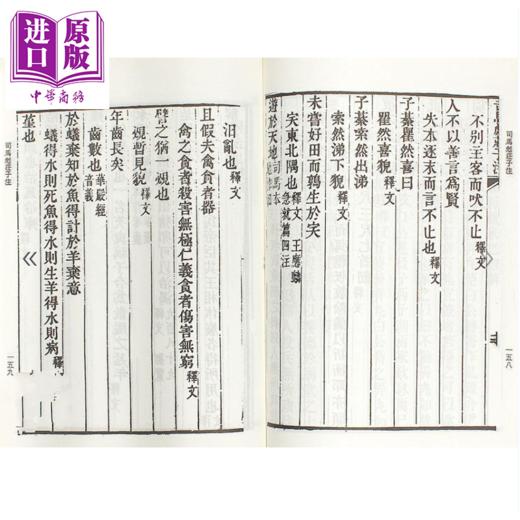 进口
原版
中华商务
司馬彪莊子注
一五八
不別主客而吠不止釋文
人不以善言爲賢
失本逐末而言不止也釋文
子綦瞿然喜曰
瞿然喜貌釋文
子綦索然出涕
索然涕下貌釋文
未嘗好田而鶉生於宎
宎東北隅也釋文王應麟急就篇四注
遊於天地司馬本
汨亂也釋文
且假夫禽貪者器
禽之貪者殺害無極仁義貪者傷害無窮釋文
譬之猶一覕也
覕暫見貌釋文
年齒長矣
齒數也華嚴經音義
於蟻棄知於魚得計於羊棄意
蟻得水則死魚得水則生羊得水則病釋文
堇也
司馬彪莊子注
一五九